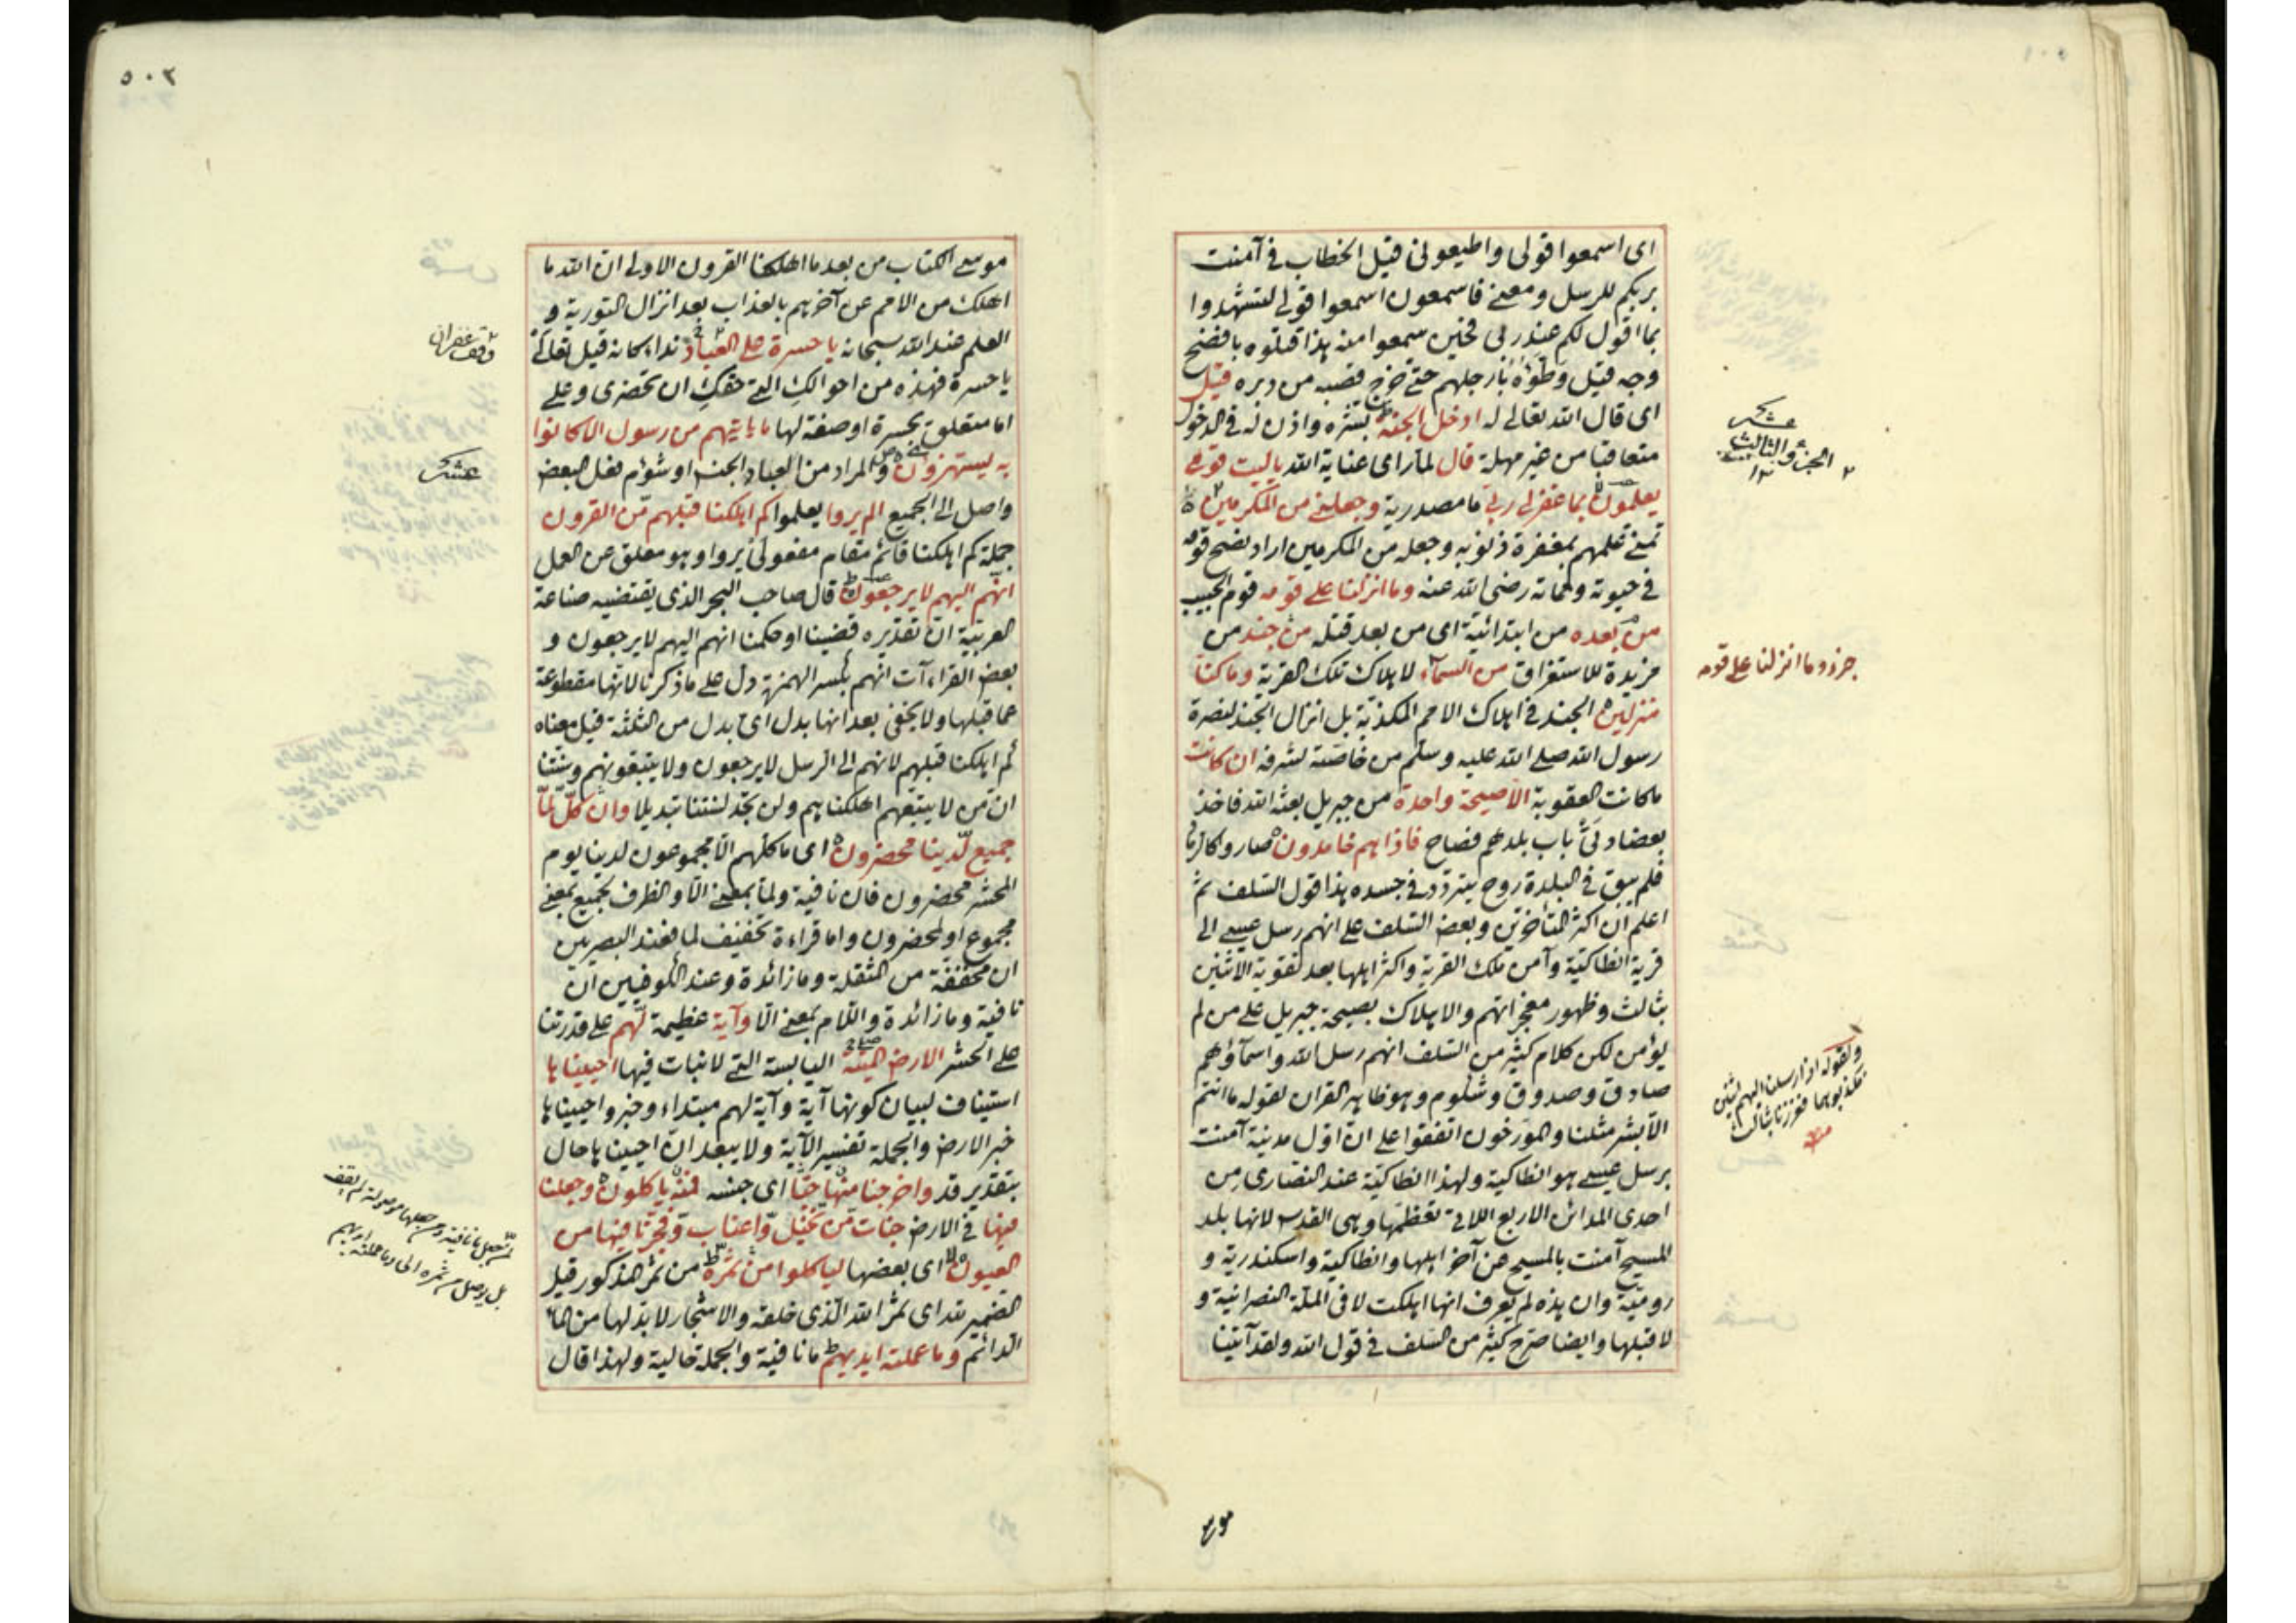 اى اسمعوا قولى واطيعونى قيل الخطاب فى آمنت
بربكم للرسل ومعنى فاسمعون اسمعوا قولى لتشهدوا
بما اقول لكم عند ربى فحين سمعوا منه هذا قتلوه بافضح
وجه قيل وطؤه بارجلهم حتى خرج قصبه من دبره قيل
اى قال الله تعالى له ادخل الجنة بشره واذن له فى الدخول
متعاقبا من غير مهلة قال لما راى عناية الله ياليت قومى
يعلمون بما غفر لى ربى ما مصدرية وجعلنى من المكرمين
تمنى علمهم بمغفرة ذنوبه وجعله من المكرمين اراد نصح قومه
فى حيوته ومماته رضى الله عنه وما انزلنا على قومه قوم الحبيب
من بعده من ابتدائية اى من بعد قتله من جند من
مزيدة للاستغراق من السماء لاهلاك تلك القرية وما كنا
منزلين الجند فى اهلاك الامم المكذبة بل انزال الجند لنصرة
رسول الله صلى الله عليه وسلم من خاصته لشرفه ان كانت
ما كانت العقوبة الا صيحة واحدة من جبريل بعثه الله فاخذ
بعضادتى باب بلدهم فصاح فاذا هم خامدون صاروا كالرماد
فلم يبق فى البلدة روح يتردد فى جسده هذا قول السلف ثم
اعلم ان اكثر المتأخرين وبعض السلف على انهم رسل عيسى الى
قرية انطاكية وآمن ملك القرية واكثر اهلها بعد تقوية الاثنين
بثالث وظهور معجزاتهم والاهلاك بصيحة جبريل على من لم
يؤمن لكن كلام كثير من السلف انهم رسل الله واسماؤهم
صادق وصدوق وشلوم وهو ظاهر القران لقوله ما انتم
الا بشر مثلنا والمورخون اتفقوا على ان اول مدينة آمنت
برسل عيسى هو انطاكية ولهذا انطاكية عند النصارى من
احدى المدائن الاربع اللاتى تعظمها وهى القدس لانها بلد
المسيح آمنت بالمسيح عن آخر اهلها وانطاكية واسكندرية و
رومية وان هذه لم يعرف انها اهلكت لا فى الملة النصرانية و
لا قبلها وايضا صرح كثير من السلف فى قول الله ولقد آتينا
عشر
الجزء الثالث
جزء وما انزلنا على قومه
ولقوله اذ ارسلنا اليهم اثنين
فكذبوهما فعززنا بثالث
منه
موسى
٥٠٢
موسى الكتاب من بعد ما اهلكنا القرون الاولى ان الله ما
اهلك من الامم عن آخرهم بالعذاب بعد انزال التورية و
العلم عند الله سبحانه يا حسرة على العباد نداء كانه قيل تعالى
يا حسرة فهذه من احوالك التى حقك ان تحضرى وعلى
اما متعلق بحسرة او صفة لها ما ياتيهم من رسول الا كانوا
به يستهزؤن والمراد من العباد الجنس او شؤم فعل البعض
واصل الى الجميع الم يروا يعلموا كم اهلكنا قبلهم من القرون
جملة كم اهلكنا قائم مقام مفعولى يروا وهو معلق عن العمل
انهم اليهم لا يرجعون قال صاحب البحر الذى يقتضيه صناعة
العربية ان تقديره قضينا او حكمنا انهم اليهم لا يرجعون و
بعض القراءات انهم بكسر الهمزة دل على ما ذكرنا لانها مقطوعة
عما قبلها ولا يخفى بعد انها بدل اى بدل من الثلثة قيل معناه
لم اهلكنا قبلهم لانهم الى الرسل لا يرجعون ولا يتبعونهم وسنتنا
ان من لا يتبعهم اهلكناهم ولن تجد لسنتنا تبديلا وان كل لما
جميع لدينا محضرون اى ما كلهم الا مجموعون لدينا يوم
المحشر محضرون فان نافية ولما بمعنى الا والظرف لجميع بمعنى
مجموع او لمحضرون واما قراءة تخفيف لما فعند البصريين
ان مخففة من المثقلة وما زائدة وعند الكوفيين ان
نافية وما زائدة واللام بمعنى الا وآية عظيمة لهم على قدرتنا
على الحشر الارض الميتة اليابسة التى لا نبات فيها احييناها
استيناف لبيان كونها آية وآية لهم مبتداء وخبر واحييناها
خبر الارض والجملة تفسير الآية ولا يبعد ان احييناها حال
بتقدير قد واخرجنا منها حبا اى جنسه فمنه ياكلون وجعلنا
فيها فى الارض جنات من نخيل واعناب وفجرنا فيها من
العيون اى بعضها لياكلوا من ثمره من ثمر المذكور قيل
الضمير لله اى ثمر الله الذى خلقه والاشجار لا بد لها من الماء
الدائم وما عملته ايديهم ما نافية والجملة حالية ولهذا قال
وقف غفران
عشر